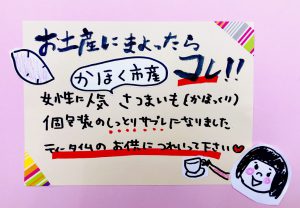 お土産にまよったら
コレ!!
かほく市産
女性に人気 さつまいも(かほっくり)
個包装のしっとりサブレになりました
ティータイムのお供につかって下さい♥